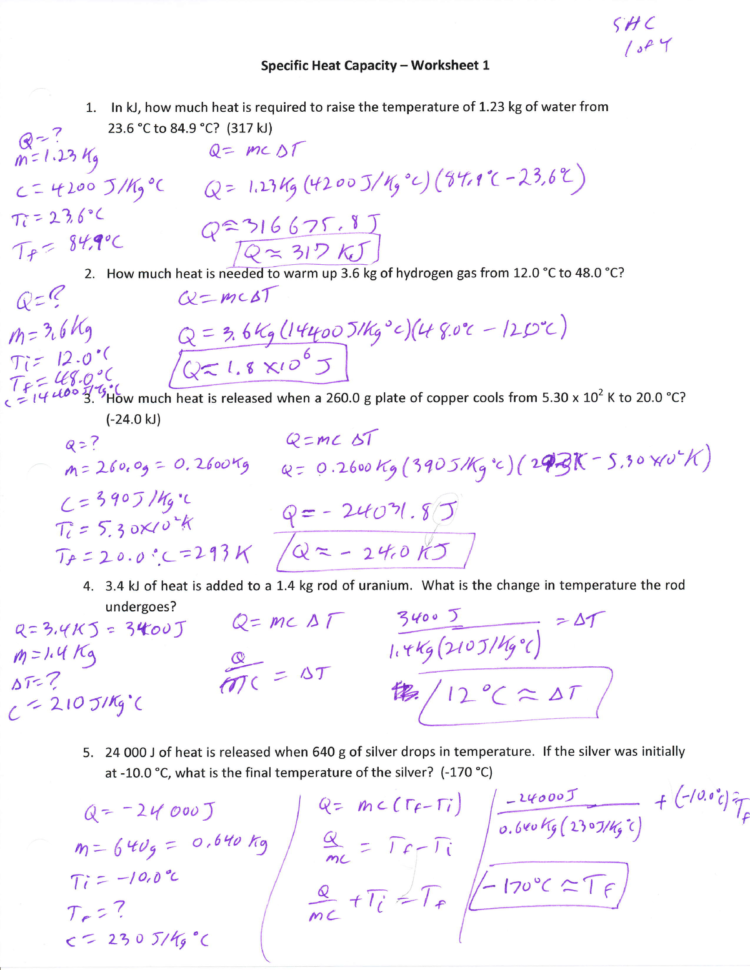 SHC
1 of 4
Specific Heat Capacity – Worksheet 1
1. In kJ, how much heat is required to raise the temperature of 1.23 kg of water from
23.6 °C to 84.9 °C? (317 kJ)
Q=?
m=1.23 Kg
c = 4200 J/Kg°C
Ti = 23.6°C
Tf = 84.9°C
Q= mc ΔT
Q= 1.23Kg (4200 J/Kg°C)(84.9°C-23.6°C)
Q≈316675.8J
Q≈ 317 KJ
2. How much heat is needed to warm up 3.6 kg of hydrogen gas from 12.0 °C to 48.0 °C?
Q=?
m=3.6Kg
Ti= 12.0°C
Tf= 48.0°C
c = 14400 J/Kg°C
Q=mcΔT
Q = 3.6Kg(14400 J/Kg°C)(48.0°C - 12.0°C)
Q≈ 1.8 x10⁶ J
3. How much heat is released when a 260.0 g plate of copper cools from 5.30 x 10² K to 20.0 °C?
(-24.0 kJ)
Q=?
m= 260.0g = 0.2600Kg
C = 390J/Kg°C
Ti = 5.30x10²K
Tf = 20.0°C =293K
Q=mc ΔT
Q= 0.2600 Kg (390J/Kg°C)(293K - 5.30x10²K)
Q=- 24031.8J
Q≈ - 24.0 KJ
4. 3.4 kJ of heat is added to a 1.4 kg rod of uranium. What is the change in temperature the rod
undergoes?
Q=3.4KJ = 3400J
m=1.4 Kg
ΔT=?
c = 210 J/Kg°C
Q= mc ΔT
Q/mc = ΔT
3400 J / 1.4Kg(210J/Kg°C) = ΔT
12 °C ≈ ΔT
5. 24 000 J of heat is released when 640 g of silver drops in temperature. If the silver was initially
at -10.0 °C, what is the final temperature of the silver? (-170 °C)
Q= -24 000J
m= 640g = 0.640 Kg
Ti= -10.0°C
Tf=?
c= 230 J/Kg°C
Q= mc(Tf-Ti)
Q/mc = Tf-Ti
Q/mc +Ti =Tf
-24000J / 0.640Kg(230J/Kg°C) + (-10.0°C)=Tf
-170°C≈Tf